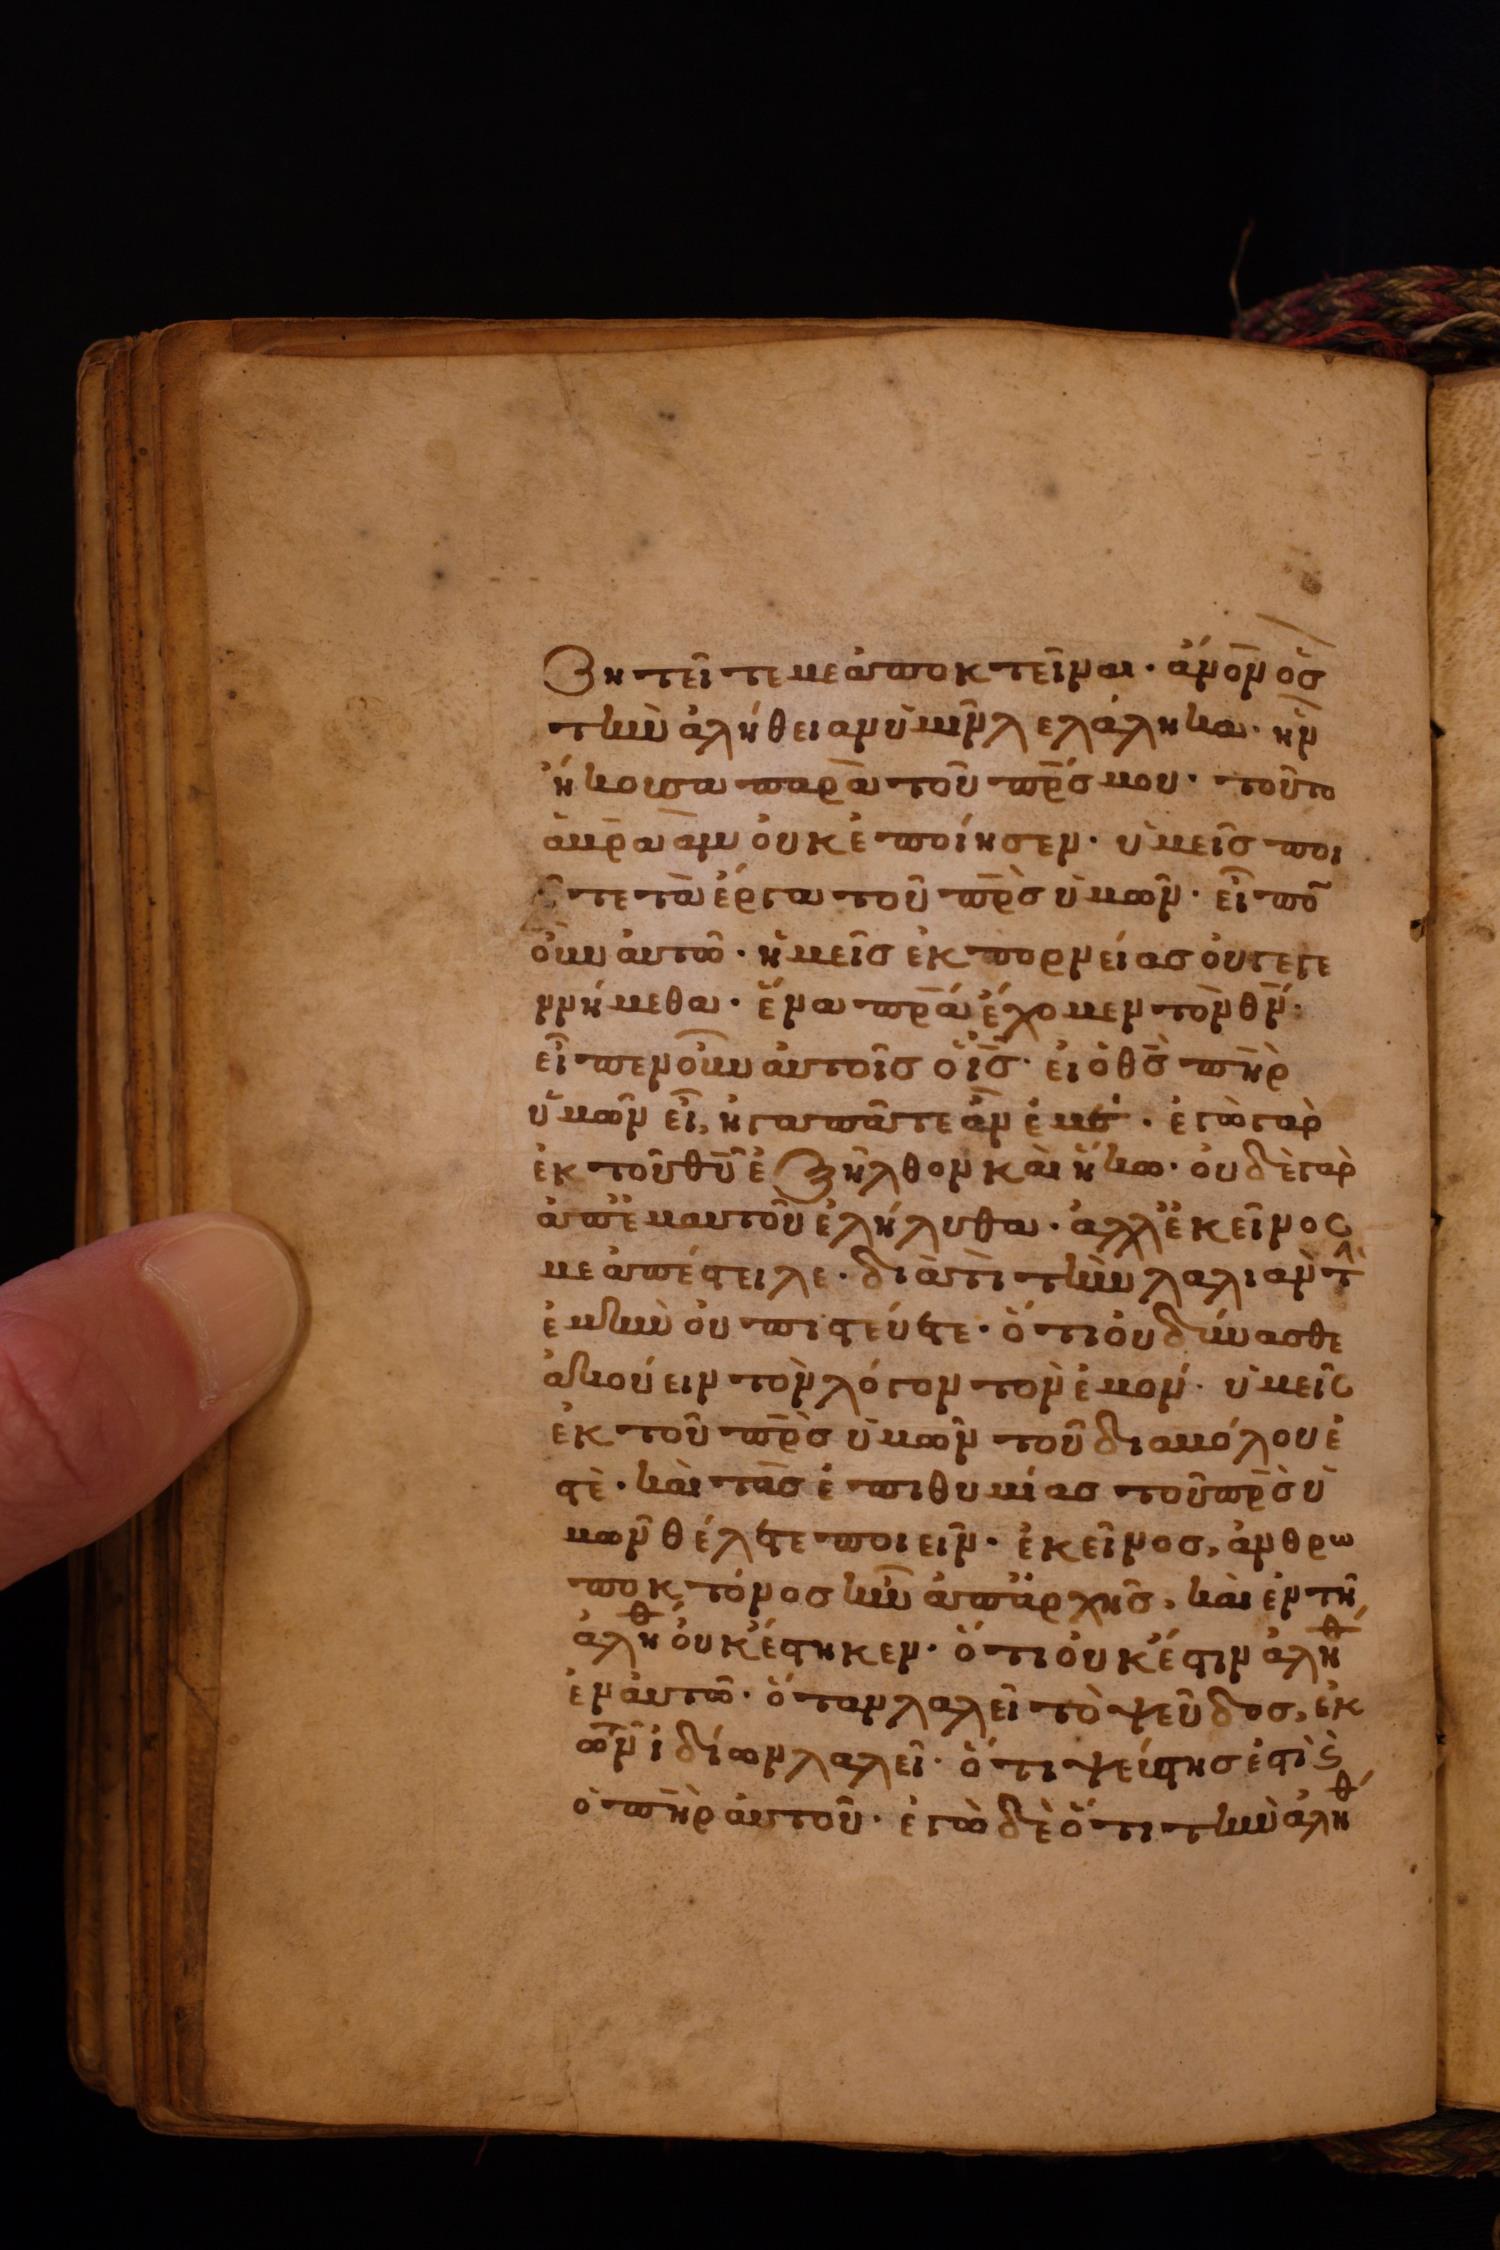 ζητεῖτε με ἀποκτεῖναι· ἄν̅ο̅ν̅ ὃς
τὴν ἀλήθειαν ὑμῖν λελάληκα· ἣν
ἤκουσα παρὰ τοῦ π̅ρ̅ς μου· τοῦτο
ἀβραὰμ οὐκ ἐποίησεν· ὑμεῖς ποι
εῖτε τὰ ἔργα τοῦ π̅ρ̅ς ὑμῶν· εἶπο̅
οὖν αὐτῶ· ἡμεῖς ἐκ πορνείας οὐ γεγε
ννήμεθα· ἕνα π̅ρ̅α ἔχομεν τὸν θ̅ν̅·
εἶπεν οὖν αὐτοῖς ὁ ι̅ς̅· εἰ ὁ θ̅ς̅ π̅η̅ρ̅
ὑμῶν εἶ, ἠγαπᾶτε ἂν ἐμέ· ἐγὼ γὰρ
ἐκ τοῦ θ̅υ̅ ἐξῆλθον καὶ ἥκω· οὐδὲ γὰρ
ἀπ' ἐμαυτοῦ ἐλήλυθα· ἀλλ' ἐκεῖνος
με ἀπέστειλε· διὰτί τὴν λαλιὰν τ̀
ἐμὴν οὐ πιστεύετε· ὅτι οὐ δύνασθε
ἀκούειν τὸν λόγον τὸν ἐμόν· ὑμεῖς
ἐκ τοῦ π̅ρ̅ς ὑμῶν τοῦ διαβόλου ἐ
στὲ· καὶ τὰς ἐπιθυμίας τοῦ π̅ρ̅ς ὑ
μῶν θέλετε ποιεῖν· ἐκεῖνος, ἀνθρω
ποκτόνος ἦν ἀπ' ἀρχῆς, καὶ ἐν τῆ
ἀληθ οὐκ ἕστηκεν· ὅτι οὐκ ἔστιν ἀληθ
ἐν αὐτῶ· ὅταν λαλεῖ τὸ ψεῦδος, ἐκ
τῶν ἰδίων λαλεῖ· ὅτι ψεύστης ἐστὶ ϛ
ὁ π̅η̅ρ̅ αὐτοῦ· ἐγὼ δὲ ὅτι τὴν ἀληθ